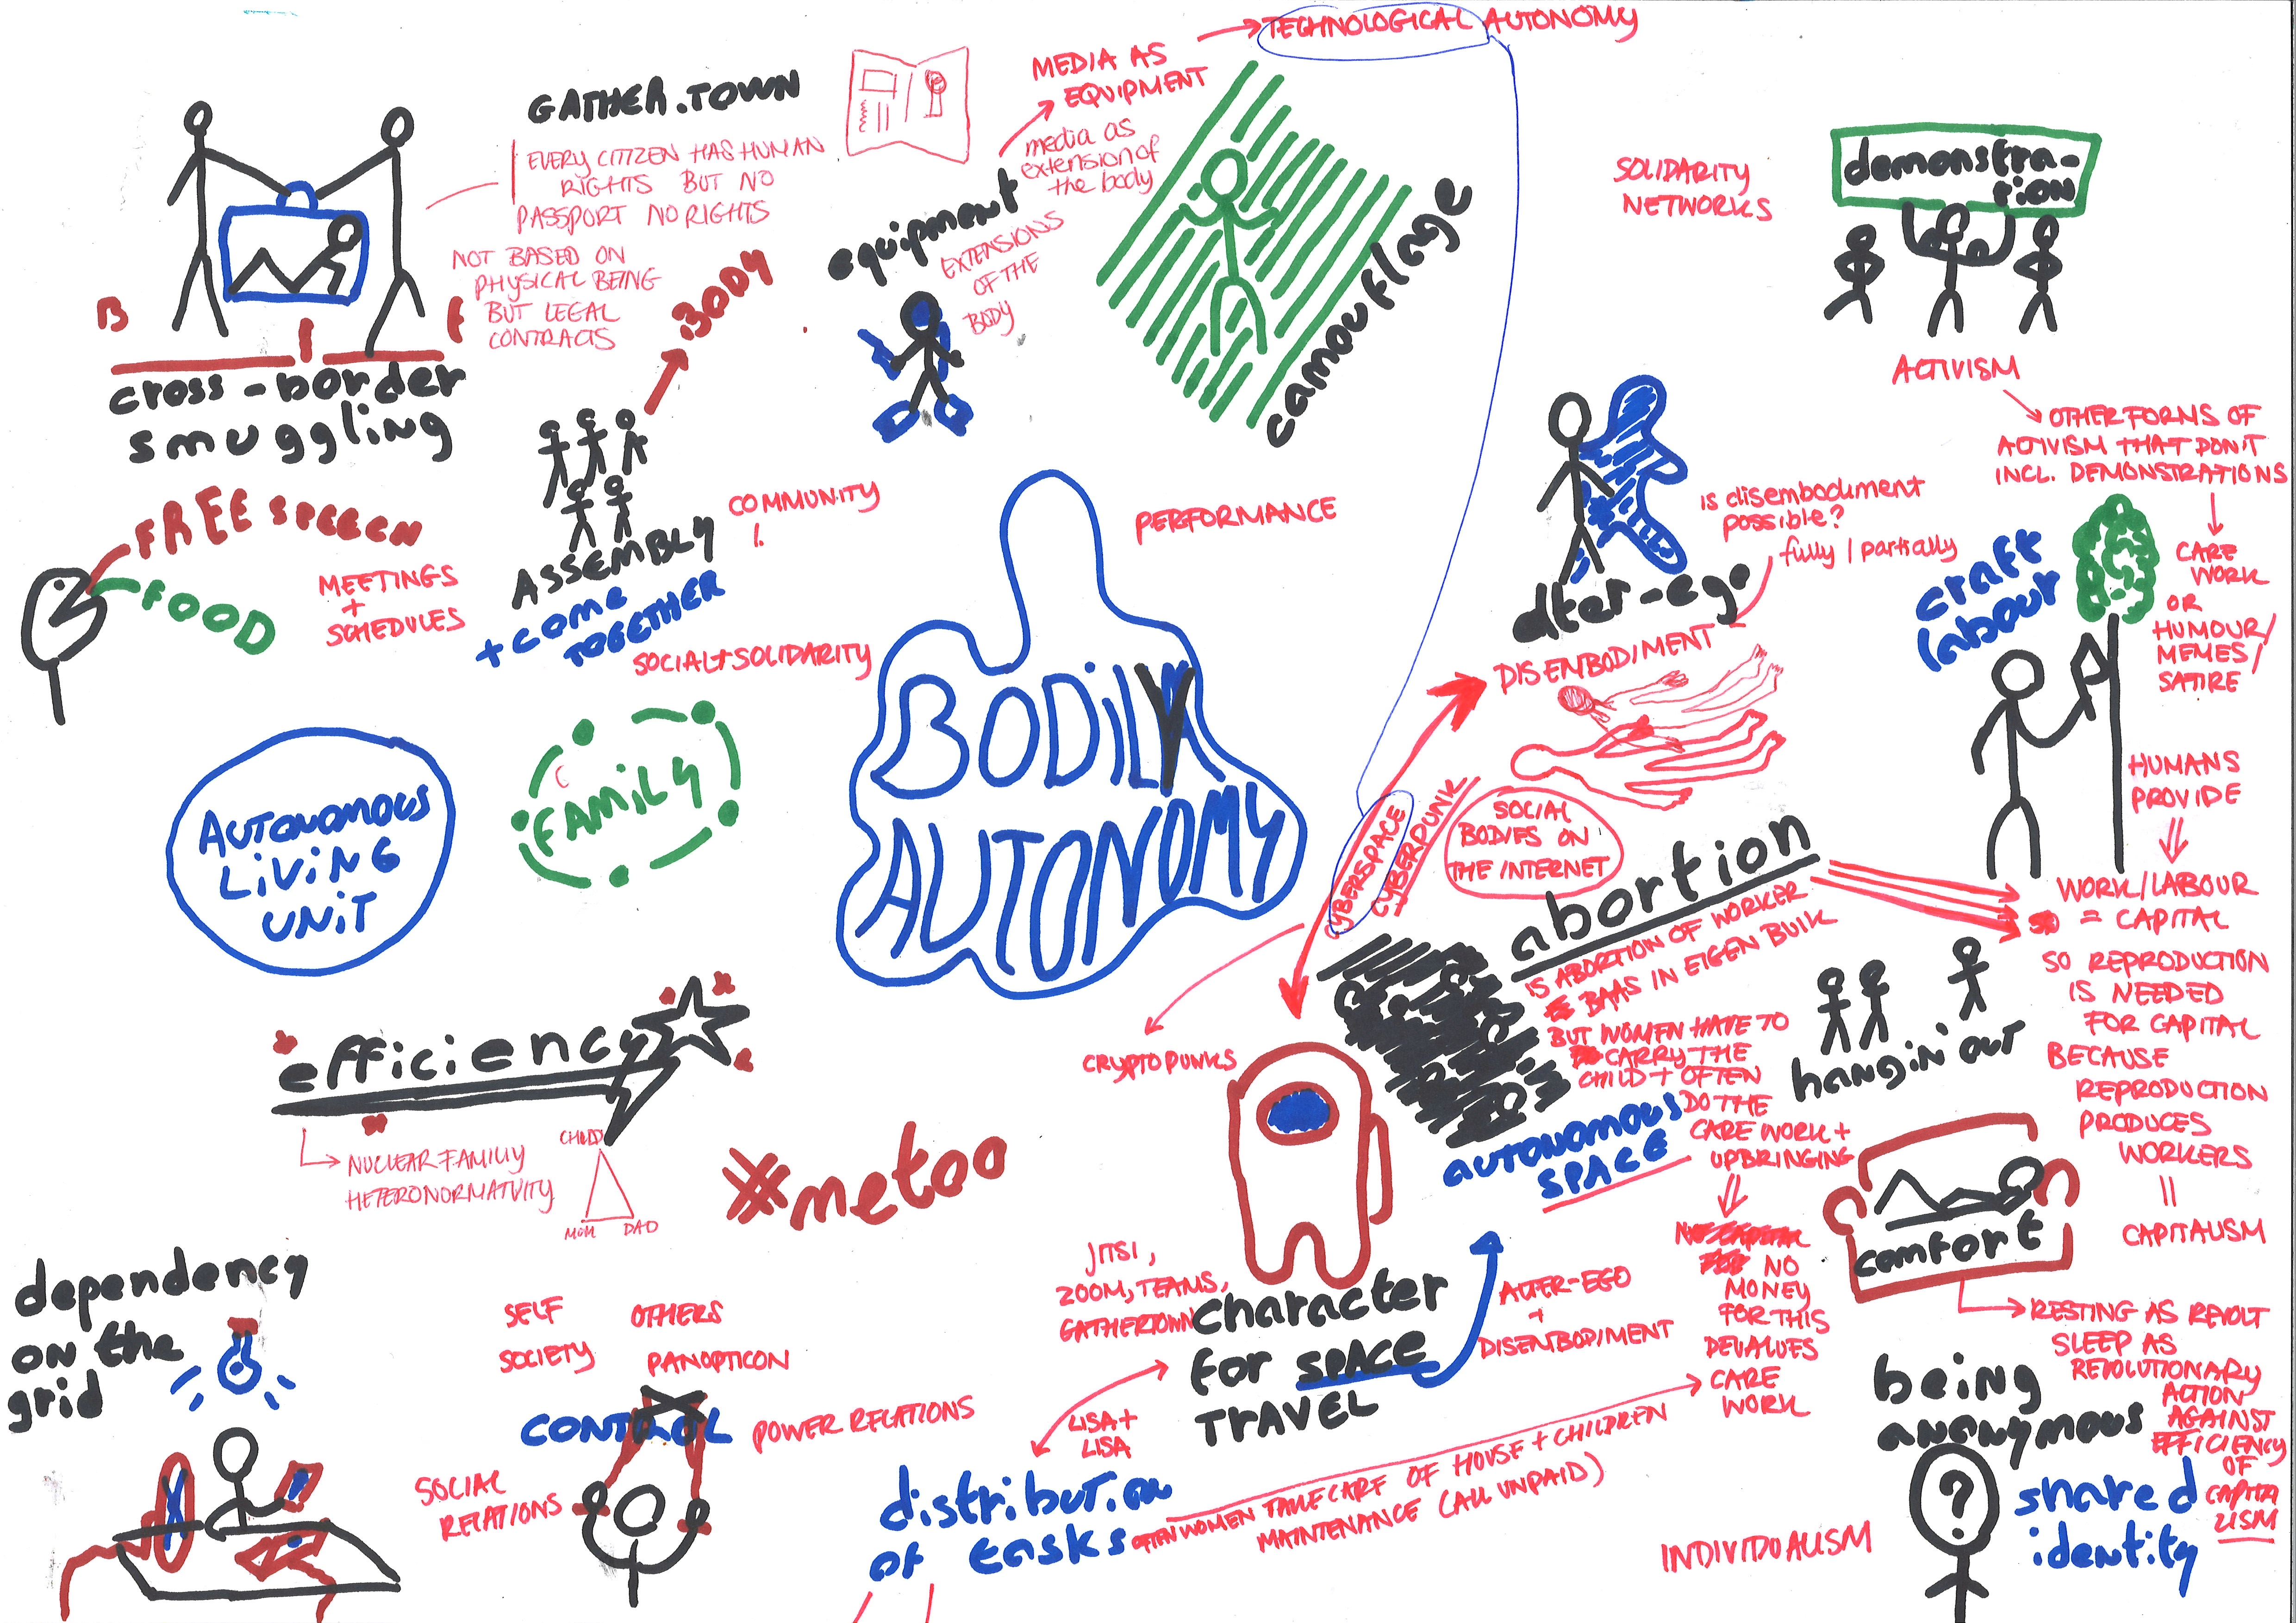 TECHNOLOGICAL AUTONOMY
MEDIA AS
EQUIPMENT
media as
extension of
the body
equipment
EXTENSIONS
OF THE
BODY
camouflage
GATHER.TOWN
EVERY CITIZEN HAS HUMAN
RIGHTS BUT NO
PASSPORT NO RIGHTS
NOT BASED ON
PHYSICAL BEING
BUT LEGAL
CONTRACTS
cross-border
smuggling
BODY
ASSEMBLY
+ come
TOGETHER
COMMUNITY
SOCIAL + SOLIDARITY
FREE SPEECH
FOOD
MEETINGS
+
SCHEDULES
AUTONOMOUS
LiViNG
UNiT
FAMiLY
BODiLY
AUTONOMY
PERFORMANCE
SOLIDARITY
NETWORKS
demonstra-
tion
ACTIVISM
OTHER FORMS OF
ACTIVISM THAT DON'T
INCL. DEMONSTRATIONS
CARE
WORK
OR
HUMOUR/
MEMES/
SATIRE
craft
labour
HUMANS
PROVIDE
WORK/LABOUR
= CAPITAL
SO REPRODUCTION
IS NEEDED
FOR CAPITAL
BECAUSE
REPRODUCTION
PRODUCES
WORKERS
=
CAPITALISM
alter-ego
is disembodiment
possible?
fully / partially
DISEMBODIMENT
CYBERSPACE
CYBERPUNK
SOCIAL
BODIES ON
THE INTERNET
CRYPTOPUNKS
abortion
IS ABORTION OF WORKER
BAAS IN EIGEN BUIK
BUT WOMEN HAVE TO
CARRY THE
CHILD + OFTEN
DO THE
CARE WORK +
UPBRINGING
NO
MONEY
FOR THIS
DEVALUES
CARE
WORK
AUTONOMOUS
SPACE
hangin out
comfort
RESTING AS REVOLT
SLEEP AS
REVOLUTIONARY
ACTION
AGAINST
EFFICIENCY
OF
CAPITA
LISM
efficiency
NUCLEAR FAMILIY
HETERONORMATVITY
CHILD
MOM
DAD
#metoo
dependency
on the
grid
SELF
OTHERS
SOCIETY
PANOPTICON
CONTROL
POWER RELATIONS
SOCIAL
RELATIONS
JITSI,
ZOOM, TEAMS,
GATHERTOWN
character
for SPACE
TRAVEL
ALTER-EGO
+
DISEMBODIMENT
LISA +
LISA
distribution
of tasks
OFTEN WOMEN TAKE CARE OF HOUSE + CHILDREN
MAINTENANCE (ALL UNPAID)
being
anonymous
?
shared
identity
INDIVIDUALISM